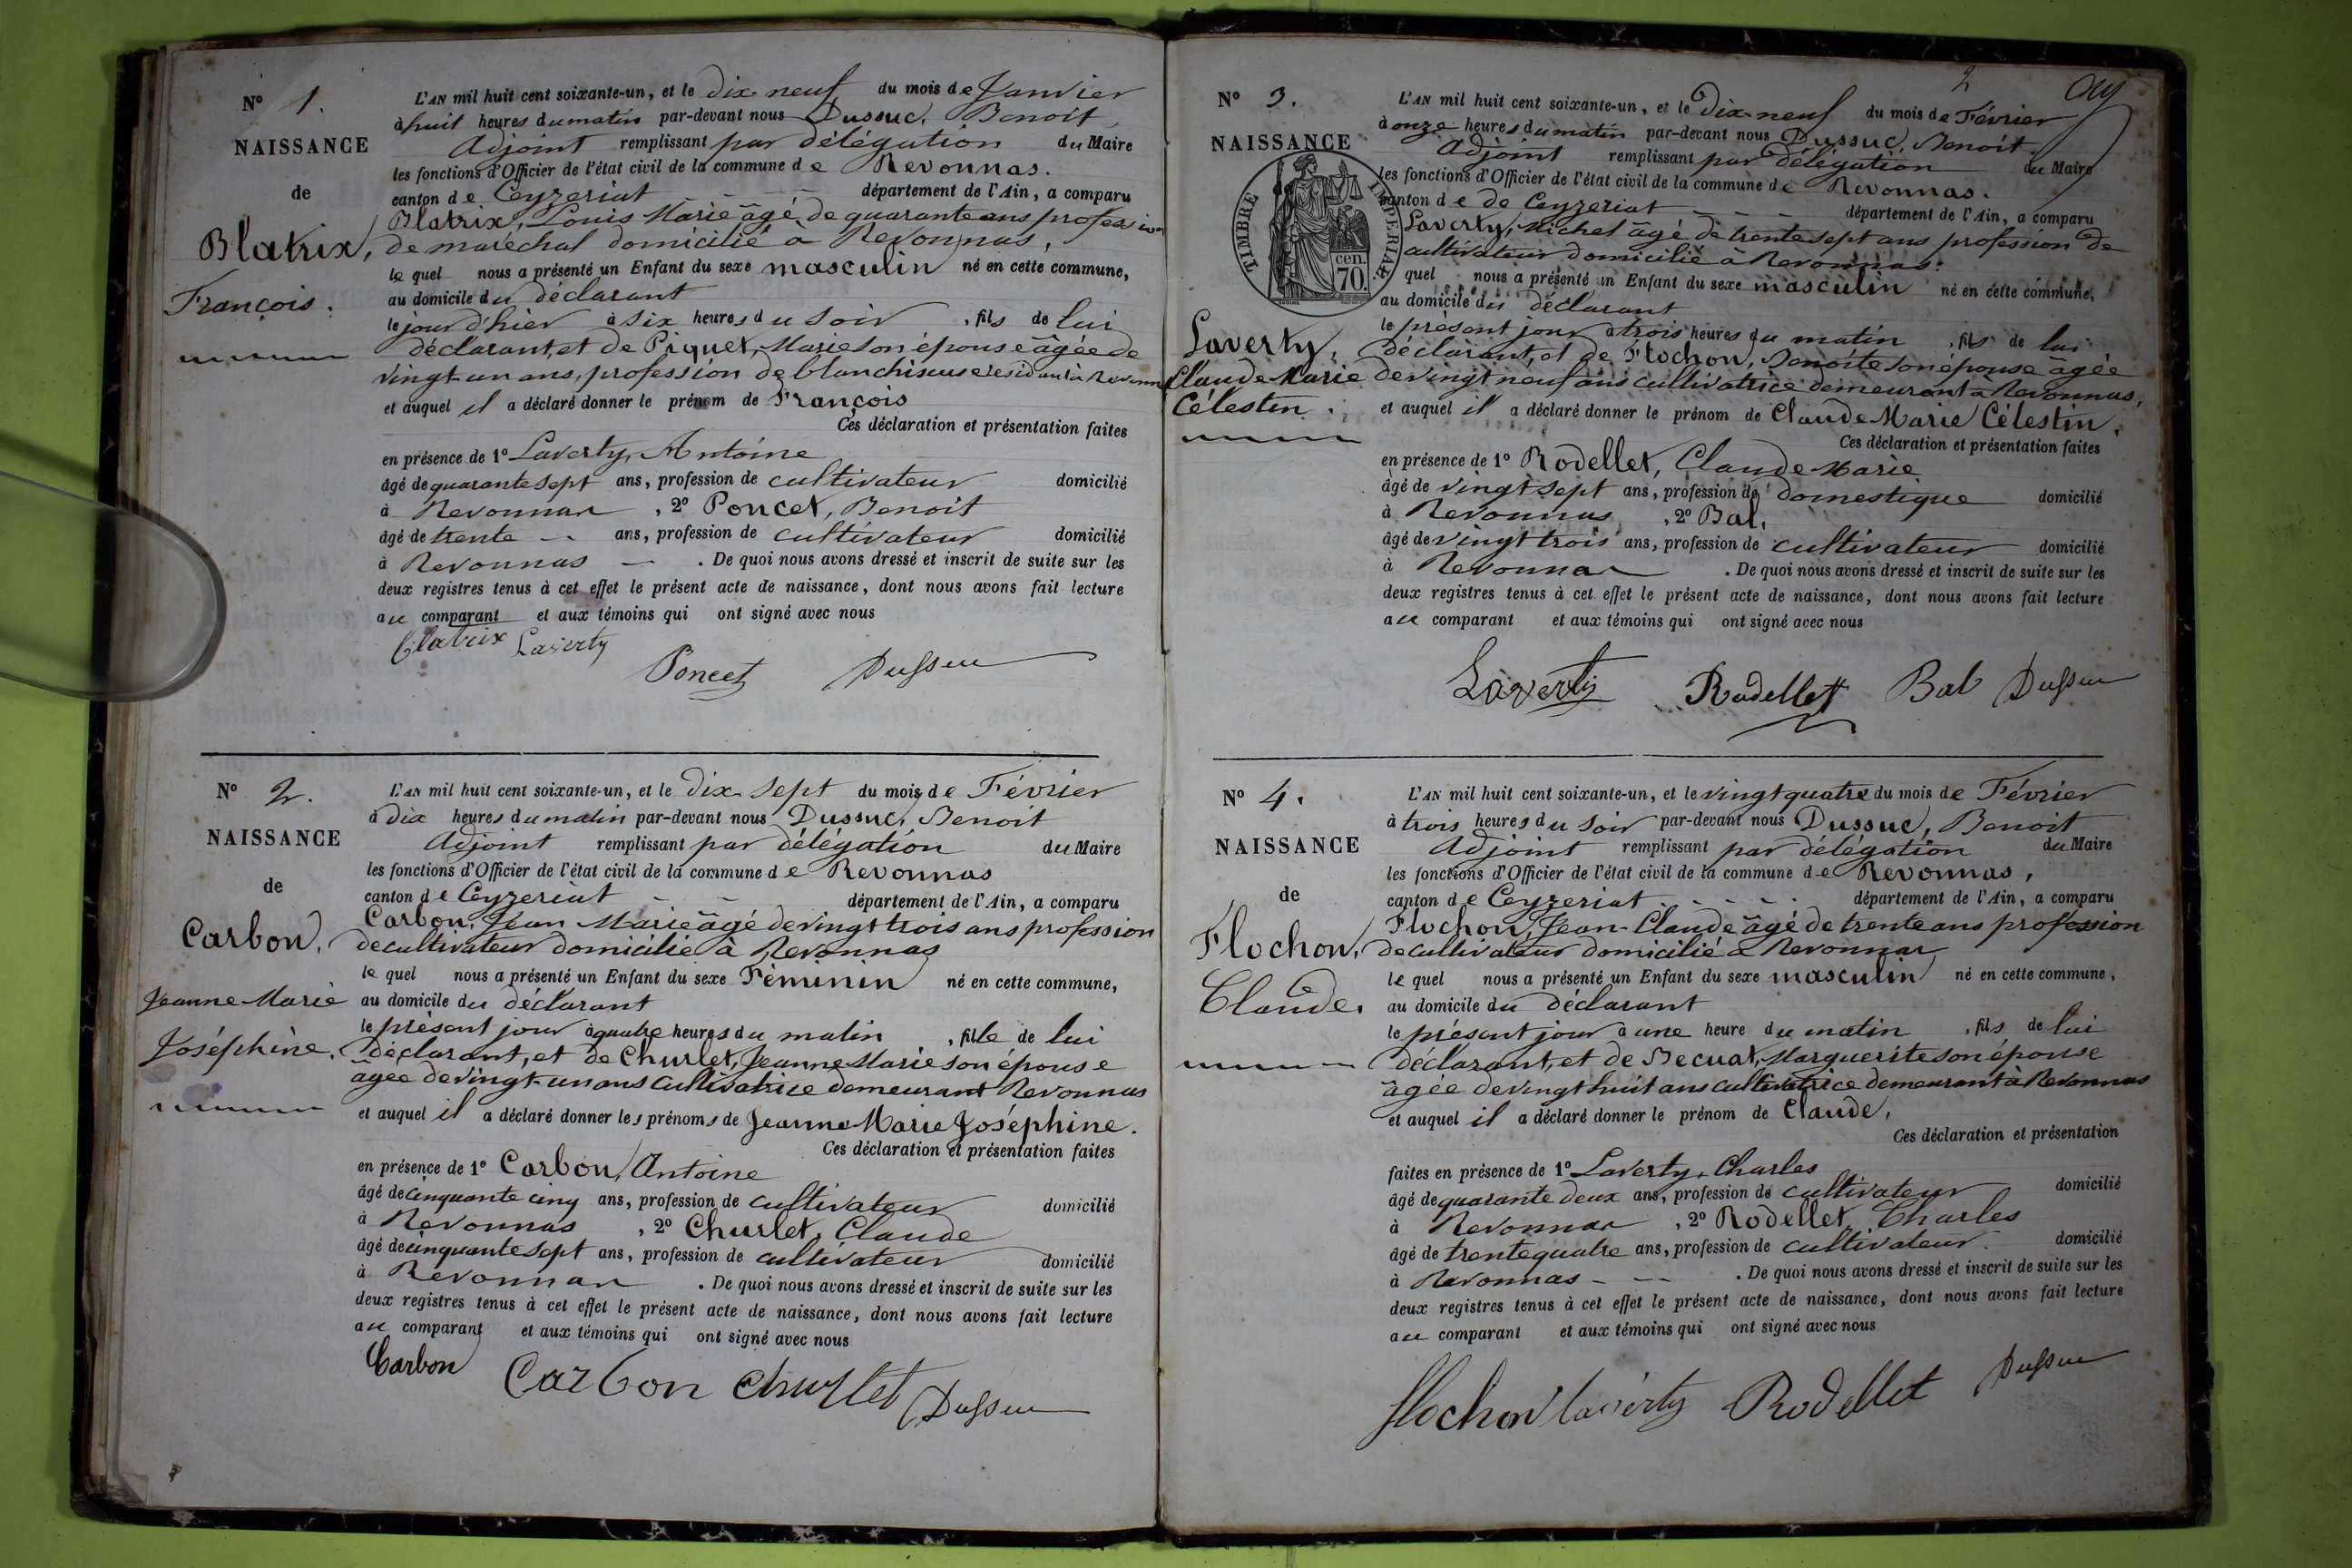 N° 1.
NAISSANCE
de
Blatrix,
François.
L'AN mil huit cent soixante-un, et le dix-neuf du mois de Janvier
à huit heures du matin par-devant nous Dussuc, Benoit,
Adjoint remplissant par délégation du Maire
les fonctions d'Officier de l'état civil de la commune de Revonnas.
canton de Ceyzeriat département de l'Ain, a comparu
Blatrix, Louis Marie âgé de quarante ans profession
de maréchal domicilié à Revonnas,
le quel nous a présenté un Enfant du sexe masculin né en cette commune,
au domicile du déclarant
le jour d'hier à six heures du soir, fils de lui
déclarant, et de Piquet, Marie son épouse âgée de
vingt-un ans, profession de blanchiseuse residant à Revonn
et auquel il a déclaré donner le prénom de François
Ces déclaration et présentation faites
en présence de 1° Laverty, Antoine
âgé de quarante sept ans, profession de cultivateur domicilié
à Revonnas, 2° Poncet, Benoit
âgé de trente ans, profession de cultivateur domicilié
à Revonnas. De quoi nous avons dressé et inscrit de suite sur les
deux registres tenus à cet effet le présent acte de naissance, dont nous avons fait lecture
au comparant et aux témoins qui ont signé avec nous
Blatrix Laverty
Poncet Dussuc
N° 2.
NAISSANCE
de
Carbon,
Jeanne Marie
Joséphine.
L'AN mil huit cent soixante-un, et le dix-sept du mois de Février
à dix heures du matin par-devant nous Dussuc, Benoit
Adjoint remplissant par délégation du Maire
les fonctions d'Officier de l'état civil de la commune de Revonnas
canton de Ceyzeriat département de l'Ain, a comparu
Carbon, Jean Marie âgé de vingt trois ans profession
de cultivateur domicilié à Revonnas
le quel nous a présenté un Enfant du sexe Féminin né en cette commune,
au domicile du déclarant
le présent jour à quatre heures du matin, fille de lui
déclarant, et de Churlet, Jeanne Marie son épouse
âgée de vingt-un ans cultivatrice demeurant Revonnas
et auquel il a déclaré donner les prénoms de Jeanne Marie Joséphine.
Ces déclaration et présentation faites
en présence de 1° Carbon, Antoine
âgé de cinquante cinq ans, profession de cultivateur domicilié
à Revonnas, 2° Churlet, Claude
âgé de cinquante sept ans, profession de cultivateur domicilié
à Revonnas. De quoi nous avons dressé et inscrit de suite sur les
deux registres tenus à cet effet le présent acte de naissance, dont nous avons fait lecture
au comparant et aux témoins qui ont signé avec nous
Carbon Carbon Churlet Dussuc
2
N° 3.
NAISSANCE
TIMBRE IMPERIAL
cen.
70.
Laverty,
Claude-Marie
Célestin.
L'AN mil huit cent soixante-un, et le Dix-neuf du mois de Février
à onze heures du matin par-devant nous Dussuc, Benoit.
Adjoint remplissant par délégation du Maire
les fonctions d'Officier de l'état civil de la commune de Revonnas.
canton de de Ceyzeriat département de l'Ain, a comparu
Laverty, Michel âgé de trente sept ans profession de
cultivateur domicilié à Revonnas.
quel nous a présenté un Enfant du sexe masculin né en cette commune,
au domicile du déclarant
le présent jour à trois heures du matin, fils de lui
déclarant, et de Flochon, Benoite son épouse âgée
de vingt neuf ans cultivatrice demeurant à Revonnas,
et auquel il a déclaré donner le prénom de Claude Marie Célestin.
Ces déclaration et présentation faites
en présence de 1° Rodellet, Claude-Marie
âgé de vingt sept ans, profession de domestique domicilié
à Revonnas, 2° Bal,
âgé de vingt trois ans, profession de cultivateur domicilié
à Revonnas. De quoi nous avons dressé et inscrit de suite sur les
deux registres tenus à cet effet le présent acte de naissance, dont nous avons fait lecture
au comparant et aux témoins qui ont signé avec nous
Laverty Rodellet Bal Dussuc
N° 4.
NAISSANCE
de
Flochon,
Claude.
L'AN mil huit cent soixante-un, et le vingt quatre du mois de Février
à trois heures du soir par-devant nous Dussuc, Benoit
Adjoint remplissant par délégation du Maire
les fonctions d'Officier de l'état civil de la commune de Revonnas,
canton de Ceyzeriat département de l'Ain, a comparu
Flochon, Jean-Claude âgé de trente ans profession
de cultivateur domicilié à Revonnas
le quel nous a présenté un Enfant du sexe masculin né en cette commune,
au domicile du déclarant
le présent jour à une heure du matin, fils de lui
déclarant, et de Becuat, Marguerite son épouse
âgée de vingt huit ans cultivatrice demeurant à Revonnas
et auquel il a déclaré donner le prénom de Claude,
Ces déclaration et présentation
faites en présence de 1° Laverty, Charles
âgé de quarante deux ans, profession de cultivateur domicilié
à Revonnas, 2° Rodellet, Charles
âgé de trente quatre ans, profession de cultivateur. domicilié
à Revonnas. De quoi nous avons dressé et inscrit de suite sur les
deux registres tenus à cet effet le présent acte de naissance, dont nous avons fait lecture
au comparant et aux témoins qui ont signé avec nous
flochon laverty Rodellet Dussuc